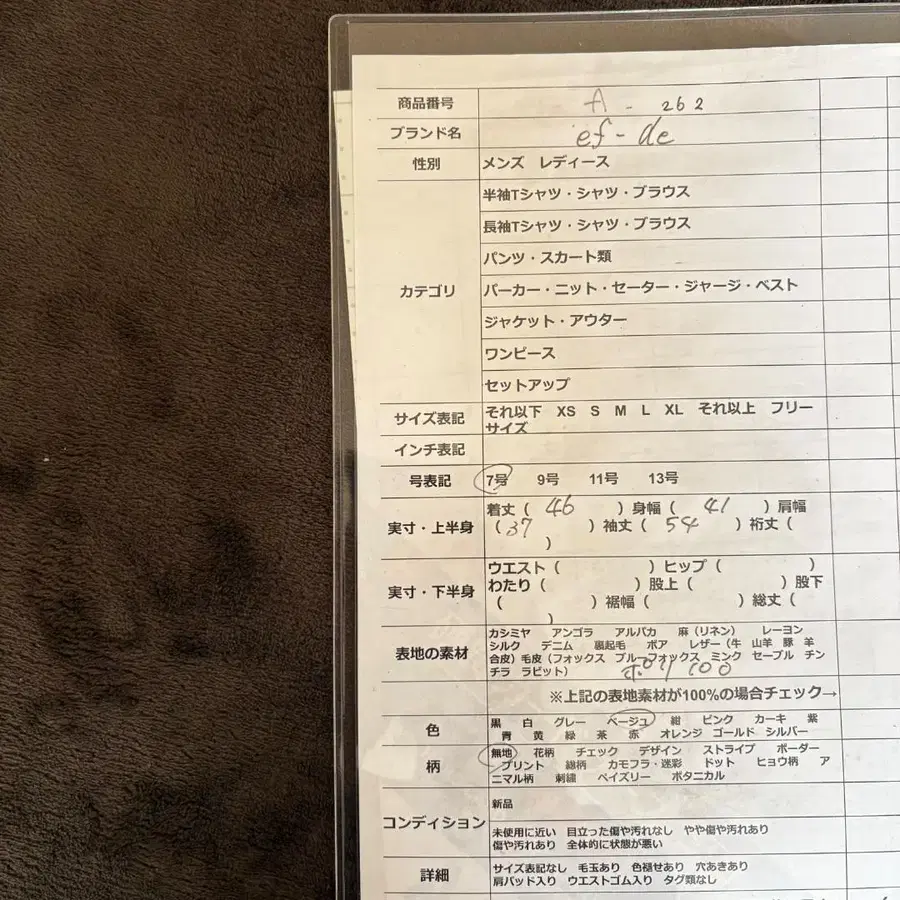 商品番号 A - 262
ブランド名 ef-de
性別 メンズ レディース
カテゴリ
半袖Tシャツ・シャツ・ブラウス
長袖Tシャツ・シャツ・ブラウス
パンツ・スカート類
パーカー・ニット・セーター・ジャージ・ベスト
ジャケット・アウター
ワンピース
セットアップ
サイズ表記 それ以下 XS S M L XL それ以上 フリー
サイズ
インチ表記
号表記 7号 9号 11号 13号
実寸・上半身 着丈( 46 )身幅( 41 )肩幅
( 37 )袖丈( 54 )裄丈(
)
実寸・下半身 ウエスト( )ヒップ( )
わたり( )股上( )股下
( )裾幅( )総丈(
)
表地の素材 カシミヤ アンゴラ アルパカ 麻(リネン) レーヨン
シルク デニム 裏起毛 ボア レザー(牛 山羊 豚 羊
合皮)毛皮(フォックス ブルーフォックス ミンク セーブル チン
チラ ラビット) ポリ 100
※上記の表地素材が100%の場合チェック→
色 黒 白 グレー ベージュ 紺 ピンク カーキ 紫
青 黄 緑 茶 赤 オレンジ ゴールド シルバー
柄 無地 花柄 チェック デザイン ストライプ ボーダー
プリント 総柄 カモフラ・迷彩 ドット ヒョウ柄 ア
ニマル柄 刺繍 ペイズリー ボタニカル
コンディション 新品
未使用に近い 目立った傷や汚れなし やや傷や汚れあり
傷や汚れあり 全体的に状態が悪い
詳細 サイズ表記なし 毛玉あり 色褪せあり 穴あきあり
肩パッド入り ウエストゴム入り タグ類なし